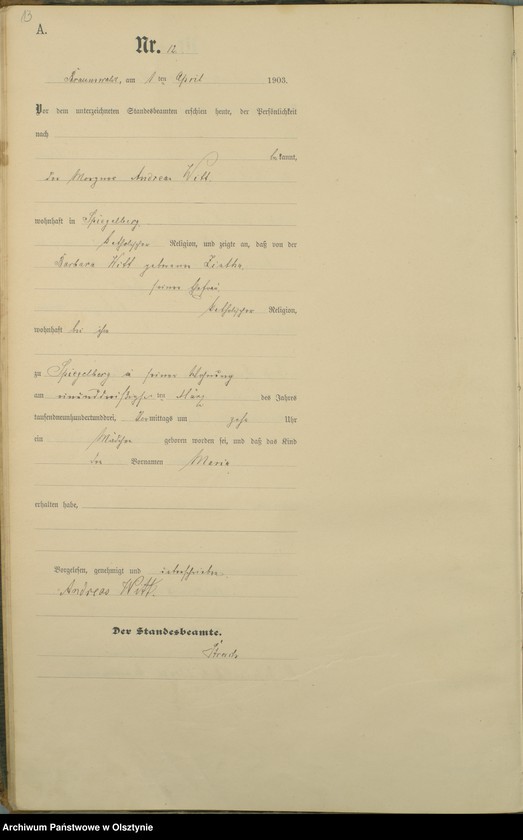 13
A.
Nr. 12
Braunswalde, am 1 ten April 1903.
Vor dem unterzeichneten Standesbeamten erschien heute, der Persönlichkeit
nach
bekannt,
der Andreas Witt
wohnhaft in Spiegelberg,
katholischer Religion, und zeigte an, daß von der
Barbara Witt geborenen
seiner Ehefrau,
katholischer Religion,
wohnhaft bei ihm
zu Spiegelberg in seiner Wohnung
am einunddreißigsten ten März des Jahres
tausendneunhundertunddrei, Vormittags um zehn Uhr
ein Mädchen geboren worden sei, und daß das Kind
den Vornamen Maria
erhalten habe,
Vorgelesen, genehmigt und unterschrieben
Andreas Witt.
Der Standesbeamte.
Archiwum Państwowe w Olsztynie